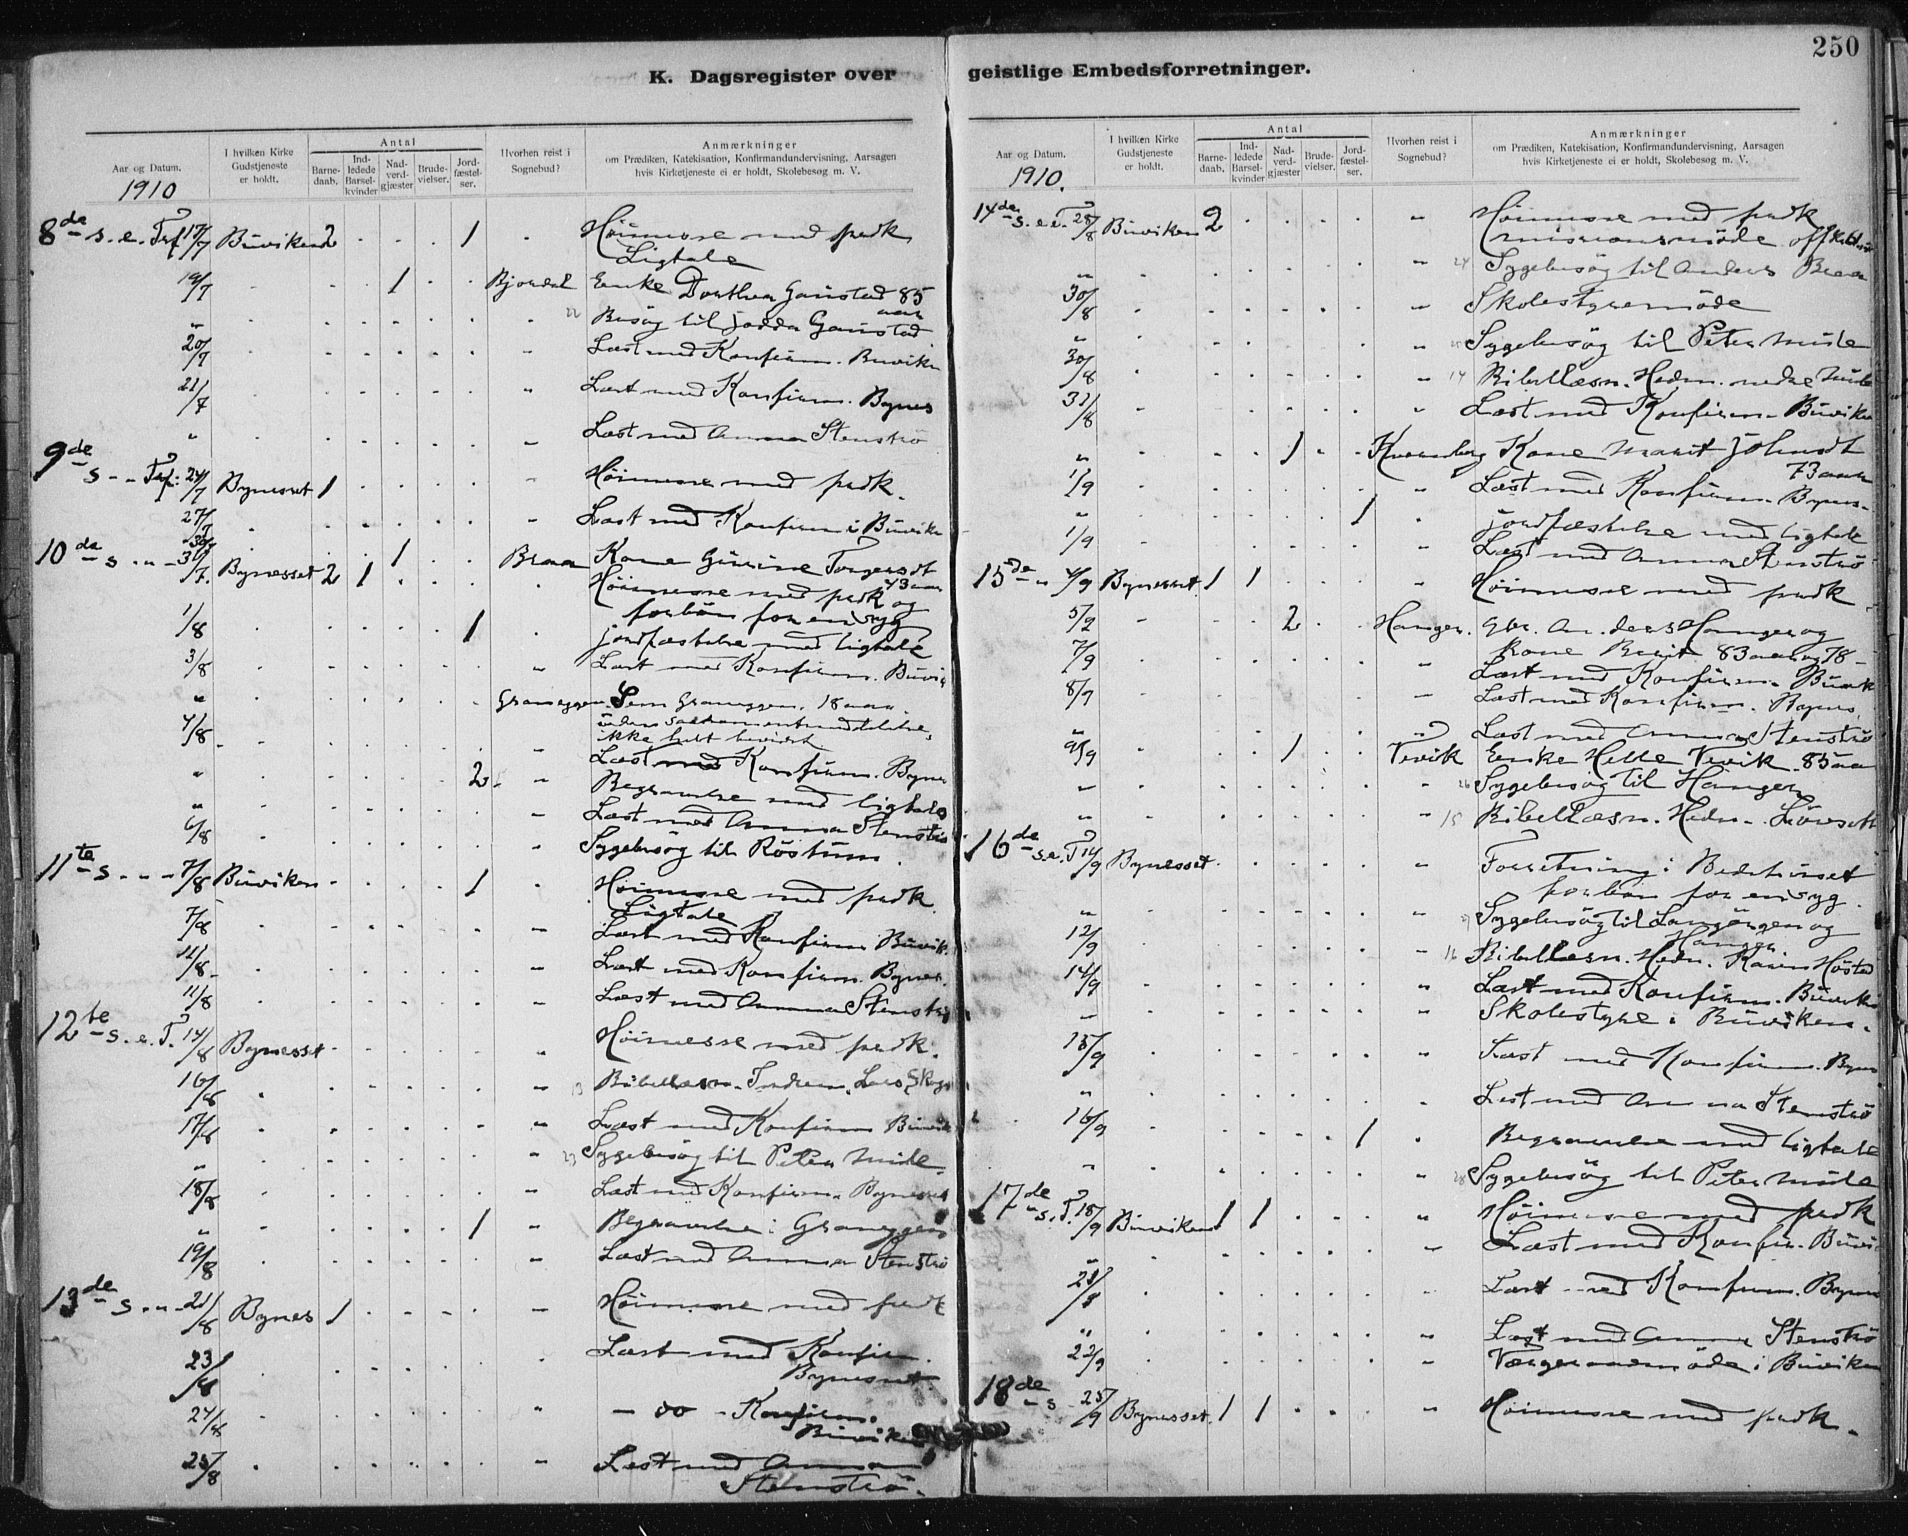 250
K. Dagsregister over geistlige Embedsforretninger.
Aar og Datum.
1910
I hvilken Kirke Gudstjeneste er holdt.
Antal
Barnedaab.
Indledede Barselkvinder
Nadverdgjæster
Brudevielser.
Jordfæstelser.
Hvorhen reist i Sognebud?
Anmærkninger
om Prædiken, Katekisation, Konfirmandundervisning, Aarsagen
hvis Kirketjeneste ei er holdt, Skolebesøg m. V.
8de s. e. Tref 17/7 Buviken 2 1 Høimesse med prdk
Ligtale
19/7 1 Bjørdal Enke Dorthea Gaustad 85
aar
" 22 Besøg til Gaustad
20/7 " Læst med Konfirm. Buviken
21/7 " Læst med Konfirm. Bynes
" " Læst med Anna Stenstrø
9de s - - Tref: 24/7 Bynesset 1 Høimesse med prdk.
27/7 " Læst med Konfirm i Buviken
30/7 1 Braa Kone Gurine Torgersdt
43 aar
10de s. " - 31/7. Bynesset 2 1 Høimesse med prdk og
forbøn for en syg
1/8 1 Jordfæstelse med ligtale
3/8 " Læst med Konfirm. Buvik
" Graneggen Graneggen. 18 aar.
uden sakramentmeddelelse,
ikke helt bevidst
4/8 " Læst med Konfirm. Bynes
" 2 " Begravelse med ligtale
" " Læst med Anna Stenstrø
6/8 " Sygebesøg til Røstum.
11te s. - - 7/8 Buviken 1 Høimesse med prdk
Ligtale
" Læst med Konfirm Buvik.
11/8 " Læst med Konfirm. Bynes.
11/8 " Læst med Anna Stenstrø
12te s. e. T. 14/8 Bynesset " Høimesse med prdk.
16/8 " 13 Bibellæsn. Lars
17/8 " Læst med Konfirm Buvik
" " 23 Sygebesøg til Peter Mule
18/8 " Læst med Konfirm. Bynesset
" 1 " Begravelse i Graneggen
19/8 " Læst med Anna Stenstrø
13de s. " - 21/8 Bynes 1 " Høimesse med prdk
23/8 Læst med Konfirm.
Bynesset
24/8 " - do - Konfirm.
Buviken
25/8 " Læst med Anna
Stenstrø.
Aar og Datum.
1910.
I hvilken Kirke Gudstjeneste er holdt.
Antal
Barnedaab.
Indledede Barselkvinder
Nadverdgjæster
Brudevielser.
Jordfæstelser.
Hvorhen reist i Sognebud?
Anmærkninger
om Prædiken, Katekisation, Konfirmandundervisning, Aarsagen
hvis Kirketjeneste ei er holdt, Skolebesøg m. V.
14de s. e. T. 28/8 Buviken 2 " Høimesse med prdk
missionsmøde
" " 24 Sygebesøg til Anders Braa
30/8 " Skolestyremøde
" " 25 Sygebesøg til Peter Mule
30/8 " 14 Bibellæsn. Hedn. nedre Mule
31/8 " Læst med Konfirm. Buviken
" 1 Kvernberg Kone Marit Johnsdt
73 aar
1/9 " Læst med Konfirm. Bynes.
" 1 Jordfæstelse med ligtale
1/9 Læst med Anna Stenstrø
15de " 4/9 Bynesset 1 1 " Høimesse med prdk
5/9 2 Hanger. Gbr. Anders Hanger og
Kone Berit 83 aar og 78 -
7/9 " Læst med Konfirm. Buvik
8/9 Læst med Konfirm. Bynes.
" " Læst med Anna Stenstrø
9/9 1 Tevik Enke Tevik. 85 aar
" 26 Sygebesøg til Hanger
" " 15 Bibellæsn. Hedn.
16de s. e. T 11/9 Bynesset. " Forretning i Bedehuset
forbøn for en syg.
" " 27 Sygebesøg til og
Hanger
12/9 " 16 Bibellæsn. Hedn.
14/9 " Læst med Konfirm. Buviken
" Skolestyre i Buviken.
15/9 " Læst med Konfirm. Bynes
" Læst med Anna Stenstrø
16/9 1 Begravelse med ligtale
" " 28 Sygebesøg til Peter Mule
17de s. T. 18/9 Buviken 1 1 " Høimesse med prdk
" " Læst med Konfir. Buvik
Læst med Konfirm. Bynes
" " Læst med Anna Stenstrø
22/9 " Værgeraadsmøde i Buviken
18de " s 25/9 Bynesset. 1 1 " Høimesse med prdk.